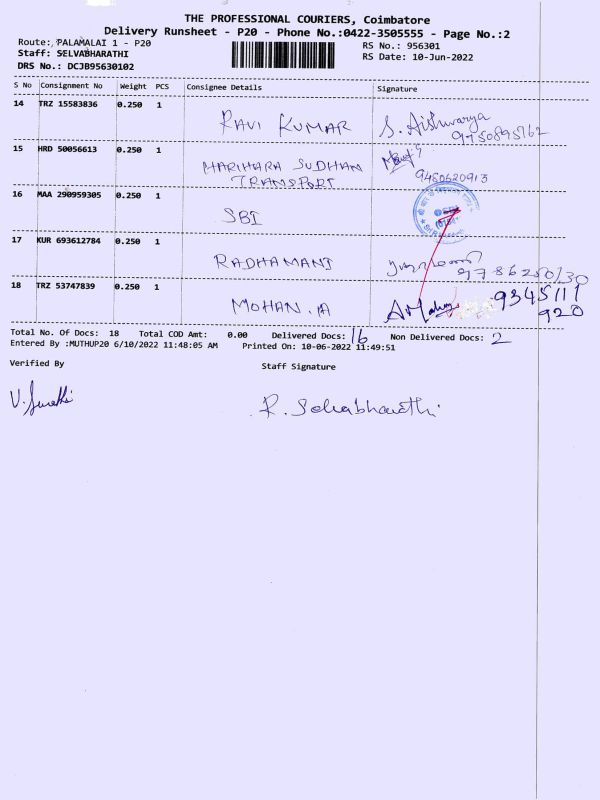 THE PROFESSIONAL COURIERS, Coimbatore
Delivery Runsheet - P20 - Phone No.:0422-3505555 - Page No.:2
Route: PALAMALAI 1 - P20
RS No.: 956301
Staff: SELVABHARATHI
RS Date: 10-Jun-2022
DRS No.: DCJB95630102
S No Consignment No Weight PCS Consignee Details Signature
14 TRZ 15583836 0.250 1
RAVI KUMAR S. Aishwarya
9750895762
15 HRD 50056613 0.250 1
HARIHARA SUDHAN
TRANSPORT 9460620913
16 MAA 290959305 0.250 1
SBI
17 KUR 693612784 0.250 1
RADHAMANI
9786250130
18 TRZ 53747839 0.250 1
MOHAN.A 9345111
920
Total No. Of Docs: 18 Total COD Amt: 0.00 Delivered Docs: 16 Non Delivered Docs: 2
Entered By :MUTHUP20 6/10/2022 11:48:05 AM Printed On: 10-06-2022 11:49:51
Verified By Staff Signature